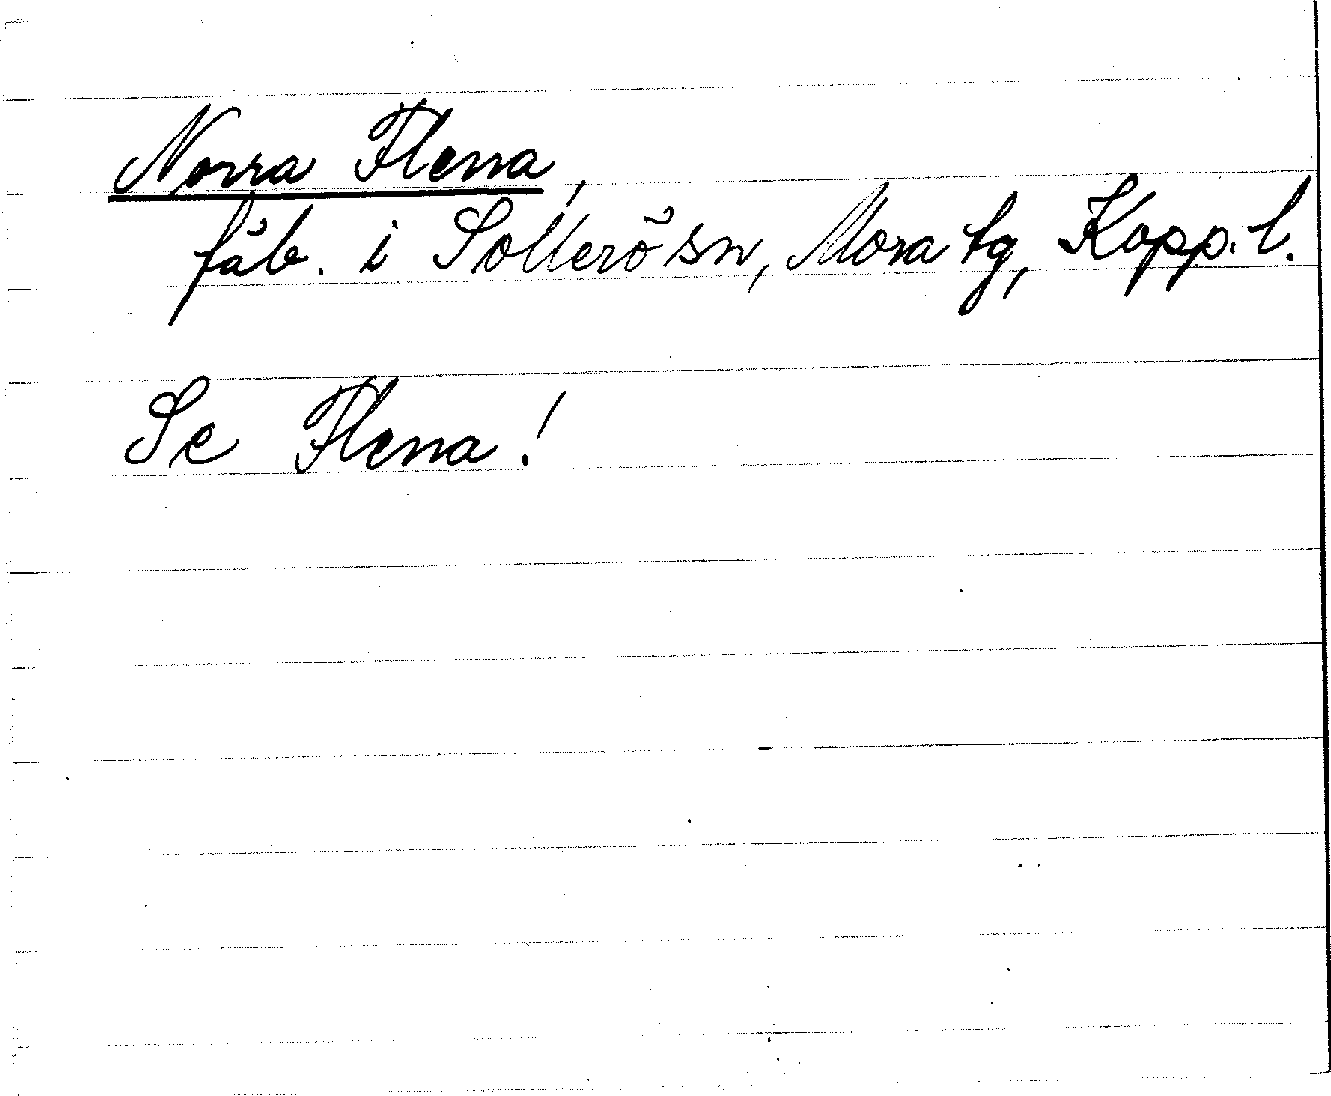 Norra Flena,
fäb. i Sollerö sn, Mora tg, Kopp. l.
Se Flena!